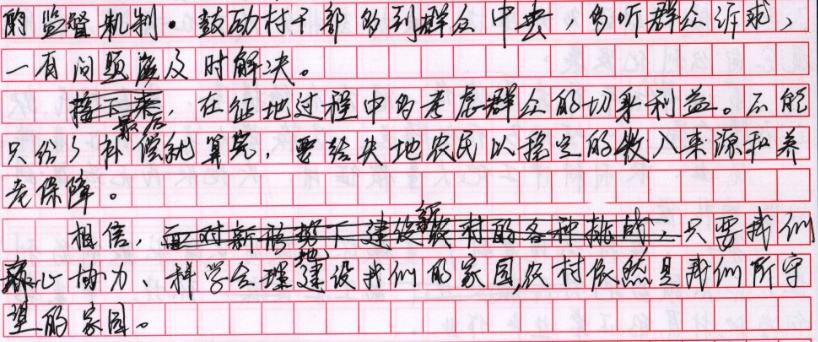 的监督机制。鼓励村干部多到群众中去，多听群众诉求，
一有问题应及时解决。
接下来，最后，在征地过程中多考虑群众的切身利益。不能
只给了补偿就算完，要给失地农民以稳定的收入来源和养
老保障。
相信，面对新形势下建设新农村的各种挑战，只要我们
齐心协力、科学合理地建设我们的家园，农村依然是我们所守
望的家园。